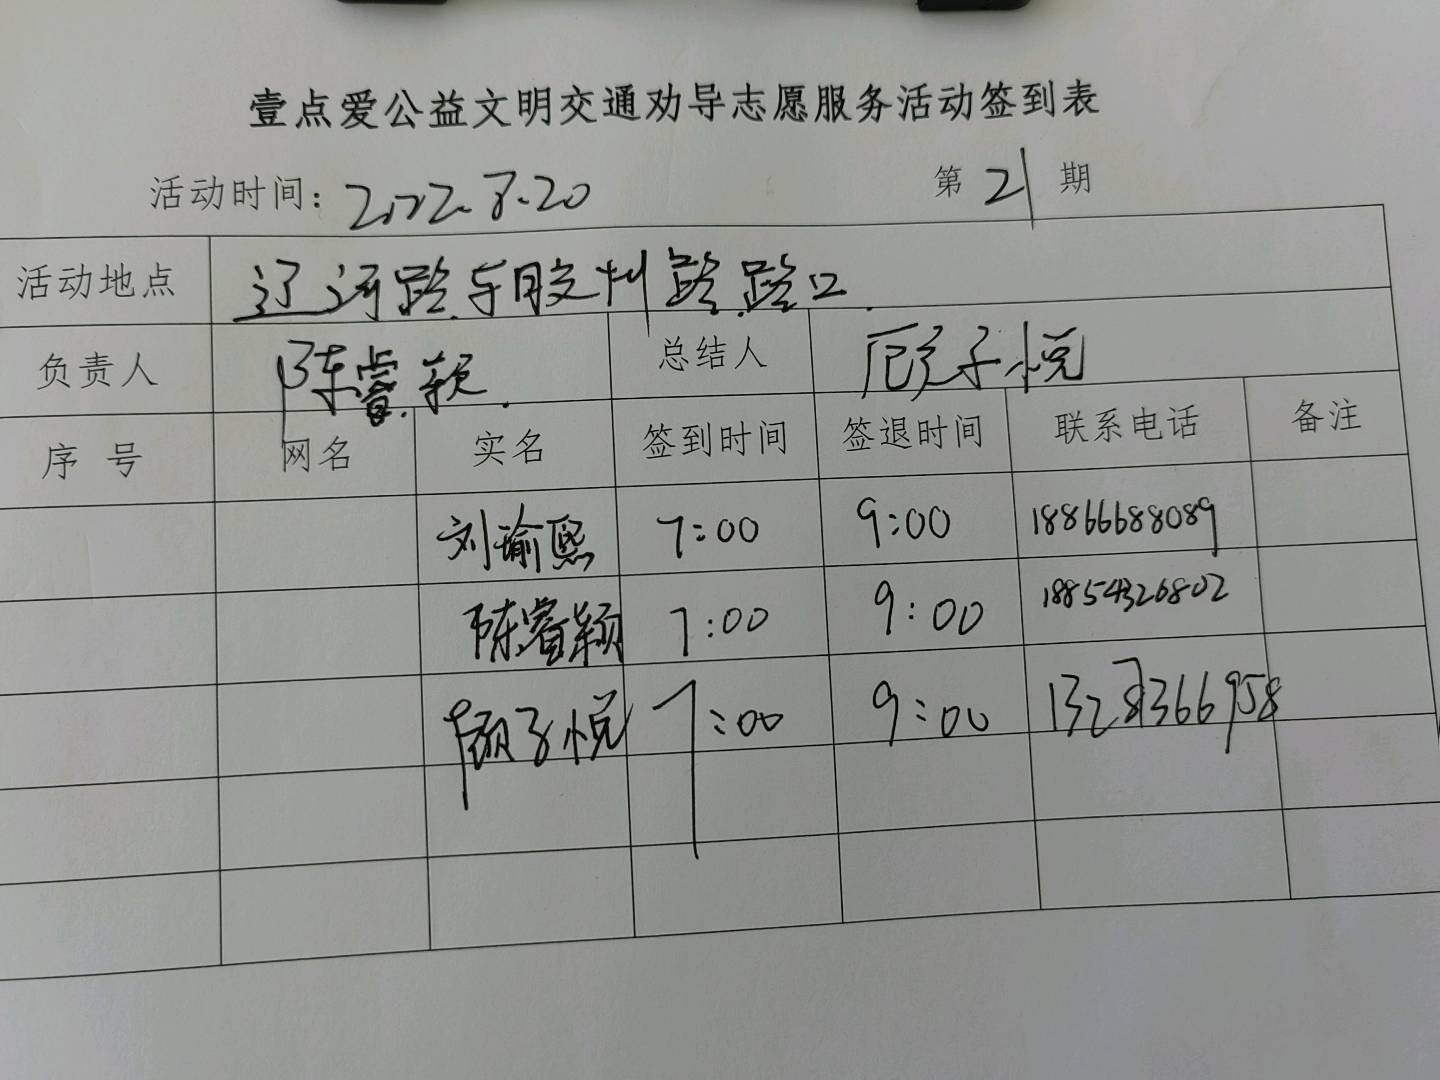 壹点爱公益文明交通劝导志愿服务活动签到表
活动时间：2022.8.20 第 21 期
活动地点 辽河路与胶州路路口.
负责人 陈睿颖. 总结人 顾子悦
序号 网名 实名 签到时间 签退时间 联系电话 备注
刘瑜熙 7:00 9:00 18866688089
陈睿颖 7:00 9:00 18854326802
顾子悦 7:00 9:00